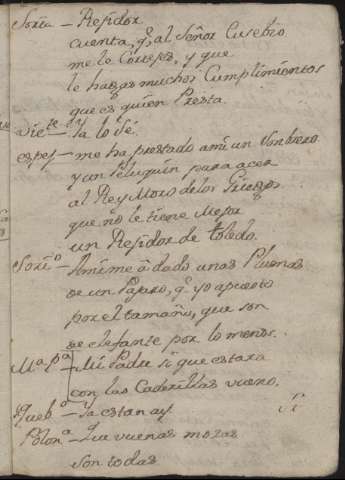 Soria — Residor
cuenta, q.e al Señor Eusebio
me le Cortejes, y que
le hagas muchos Cumplimientos
que es quien Presta.
Vic.te — Ya lo sé.
espej — me ha prestado ami un Sombrero
y un Peluquin para acer
al Rey Moro de los
que no le tiene Mejor
un Residor de toledo.
Sori.o — Ami me á dado unas Plumas
de un Pajaro, q.e yo apuesto
por el tamaño, que son
de elefante por lo menos.
M.a P.a — Mi Padre si que estara
con las Caderillas vueno.
Queb.o — Ya estan ay.
Polon.a — Que vuenas mozas
son todas
Si